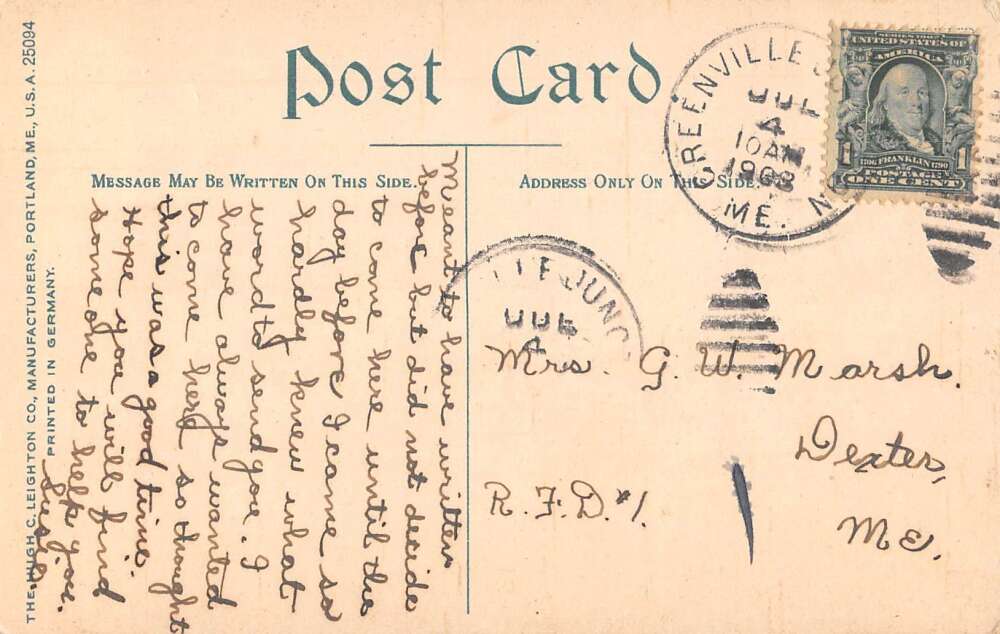 Post Card
MESSAGE MAY BE WRITTEN ON THIS SIDE.
ADDRESS ONLY ON THIS SIDE.
THE HUGH C. LEIGHTON CO., MANUFACTURERS, PORTLAND, ME., U.S.A. 25094
PRINTED IN GERMANY.
GREENVILLE
JUL
4
10 AM
1908
ME.
UNITED STATES OF
AMERICA
1706 FRANKLIN 1790
POSTAGE
1 ONE CENT 1
JUNC
JUL
4
Meant to have written
before but did not decide
to come here until the
day before I came so
hardly knew what
word to send you. I
have always wanted
to come here so thought
this was a good time.
Hope you will find
some one to help you.
Mrs. G. W. Marsh.
Dexter,
R.F.D. #1.
Me.